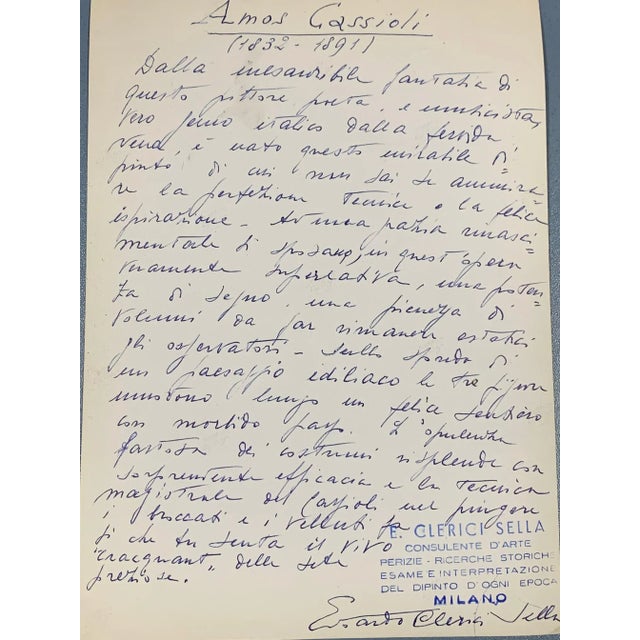 Amos Cassioli
(1832 - 1891)
Dalla inesauribile fantasia di
questo pittore, poeta, e musicista,
vero genio italico dalla fervida
vena, è nato questo mirabile di=
pinto, di cui non sai se ammira=
re la perfezione tecnica o la felice
ispirazione - Ad una grazia rinasci=
mentale si sposano, in quest'opera
veramente superlativa, una poten=
za di segno, una pienezza di
volumi da far rimanere estatici
gli osservatori - Sullo sfondo di
un paesaggio idilliaco le tre figure
muovono lungo un felice sentiero
con morbido passo. L'opulenza
fastosa dei costumi risplende con
sorprendente efficacia e la tecnica
magistrale del Cassioli nel pingere
i broccati e i velluti fa
sì che tu senta il vivo
"craquant" delle sete
preziose.
E. CLERICI SELLA
CONSULENTE D'ARTE
PERIZIE - RICERCHE STORICHE
ESAME E INTERPRETAZIONE
DEL DIPINTO D'OGNI EPOCA
MILANO
Clerici Sella